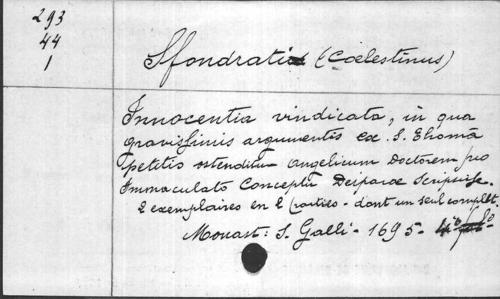 293
44
1
Sfondrati (Coelestinus)
Innocentia vindicata, in qua
gravissimis argumentis ex S. Thomâ
petitis ostenditur angelicum Doctorem pro
Immaculato Conceptu Deiparæ Scripsisse.
2 exemplaires en 2 parties - dont un seul complet.
Monast: S. Galli - 1695 - fo.